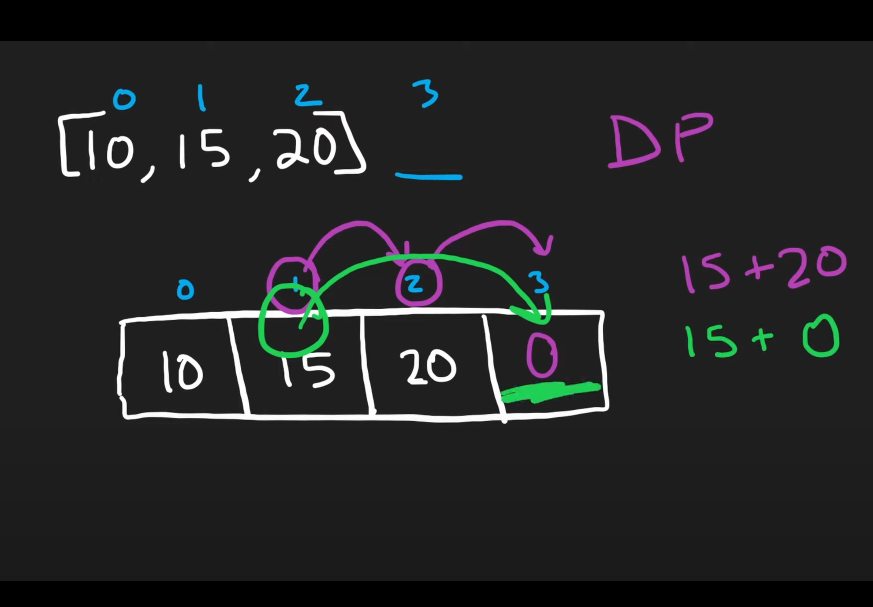 0 1 2 3
[10, 15, 20] __
DP
0 1 2 3
10 15 20 0
15+20
15+ 0